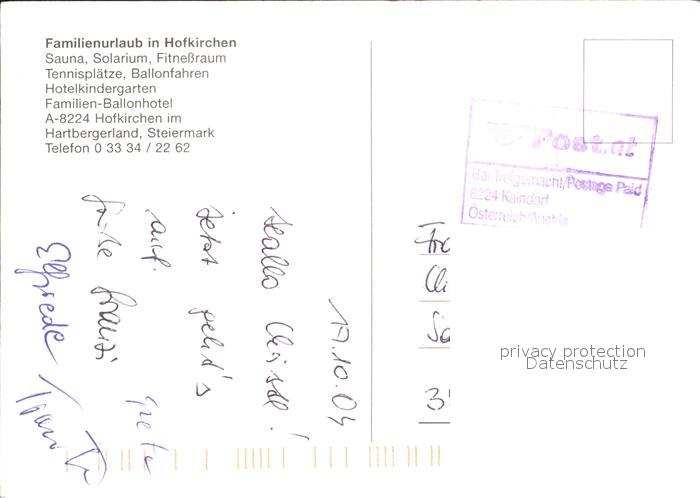 Familienurlaub in Hofkirchen
Sauna, Solarium, Fitneßraum
Tennisplätze, Ballonfahren
Hotelkindergarten
Familien-Ballonhotel
A-8224 Hofkirchen im
Hartbergerland, Steiermark
Telefon 0 33 34 / 22 62
Post.at
Bar freigemacht/Postage Paid
8224 Kaindorf
Österreich/Austria
17.10.04
Hallo
jetzt geht's
auf.
Grüße Franzi
Elfriede
privacy protection
Datenschutz